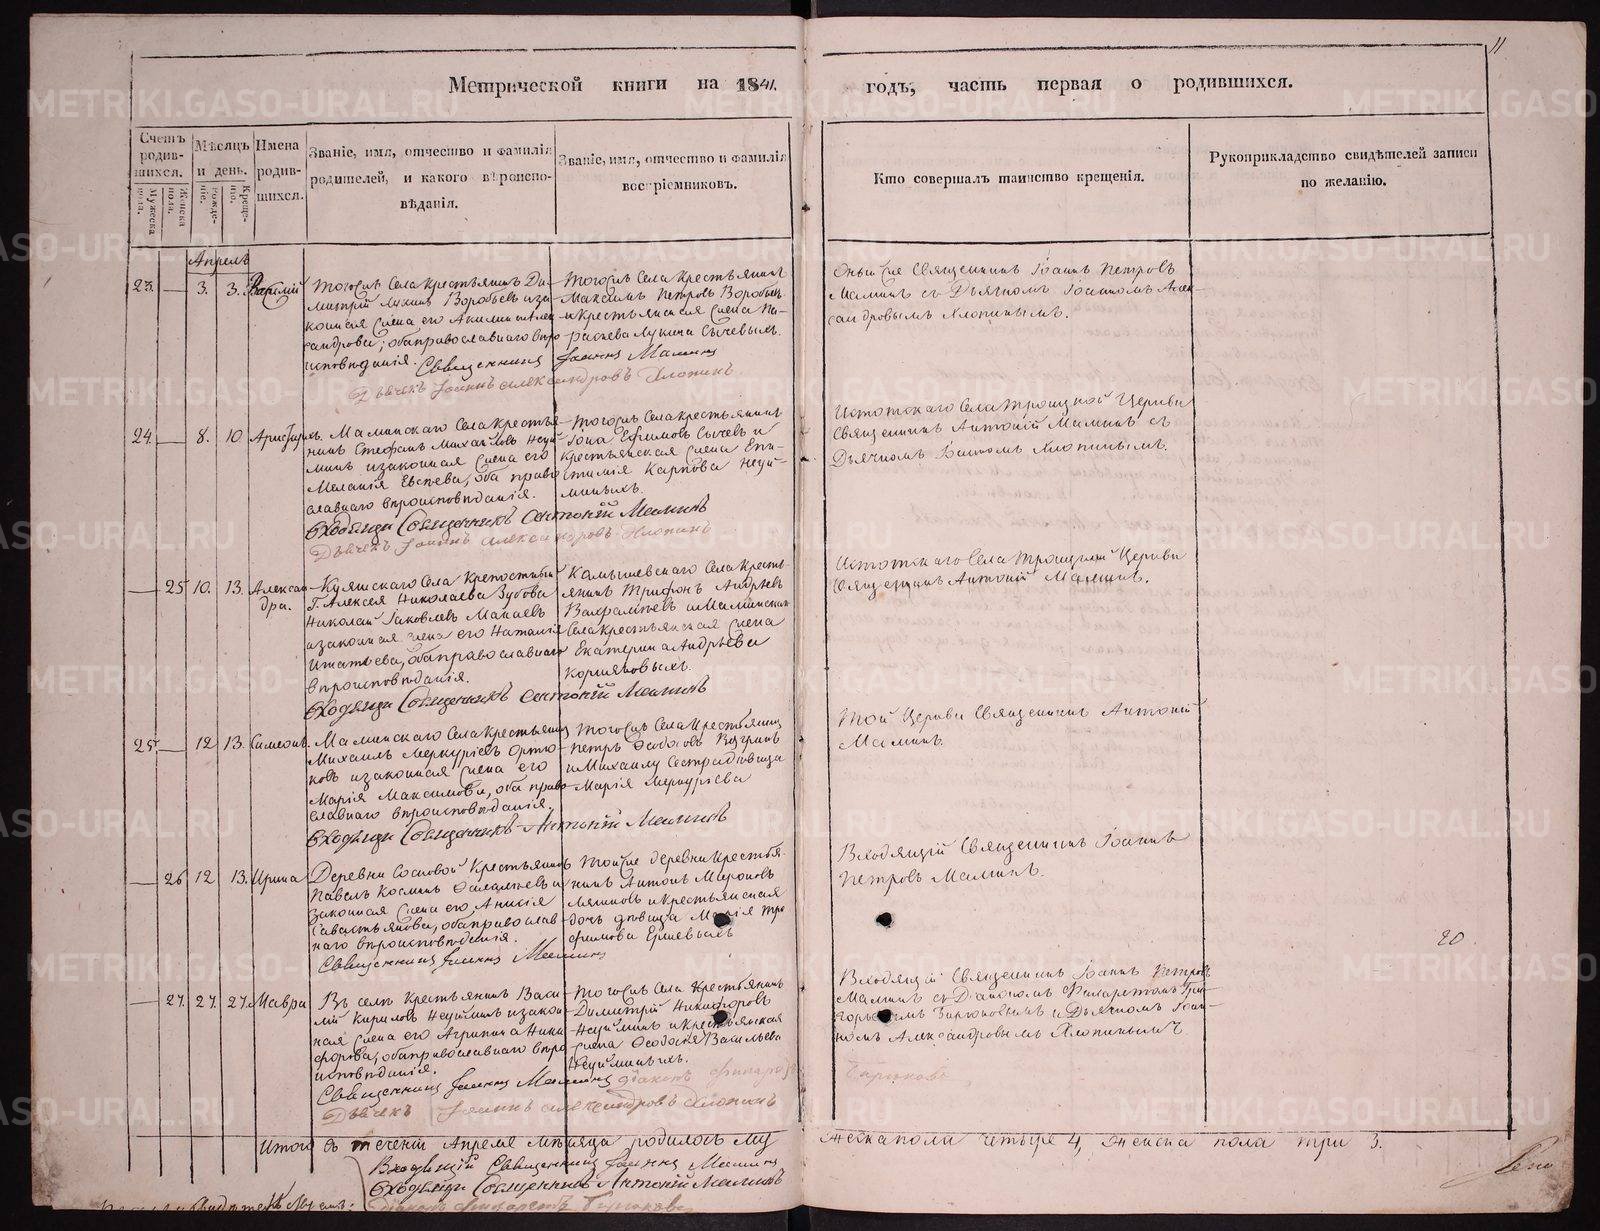 11
Метрической книги на 1841. годъ, часть первая о родившихся.
Счетъ родившихся.
Мужеска пола.
Женска пола.
Мѣсяцъ и день.
Рожденiе.
Крещенiе.
Имена родившихся.
Званiе, имя, отчество и фамилiя
родителей, и какого вѣроиспо-
вѣданiя.
Званiе, имя, отчество и фамилiя
воспрiемниковъ.
Кто совершалъ таинство крещенiя.
Рукоприкладство свидѣтелей записи
по желанiю.
Апрель
23. — 3. 3. Василiй
Тогожъ Села крестьянинъ Ди-
митрiй Лукинъ Воробьевъ и за-
конная жена его Акилина Алек
сандрова; оба православнаго вѣро
исповѣданiя.
Священникъ Iоаннъ Маминъ
Дьячекъ Iоаннъ Александровъ Хлопинъ
Тогожъ Села крестьянинъ
Максимъ Петровъ Воробьевъ
и крестьянская жена Па-
раскева Лукина Сычевыхъ.
Оный же Священникъ Iоаннъ Петровъ
Маминъ съ Дьячкомъ Iоанномъ Алек-
сандровымъ Хлопинымъ.
24 — 8. 10 Аристархъ.
Маминскаго Села крестья
нинъ Стефанъ Михайловъ Неуй
минъ и законная жена его
Меланiя Евсѣева, оба право
славнаго вѣроисповѣданiя.
Входящiй Священникъ Антонiй Маминъ
Дьячекъ Iоаннъ Александровъ Хлопинъ
Тогожъ Села крестьянинъ
Iона Ефимовъ Сычевъ и
крестьянская жена Епи-
стимiя Карпова Неуй-
миныхъ.
Истокскаго Села Троицкой Церкви
Священникъ Антонiй Маминъ съ
Дьячкомъ Iоанномъ Хлопинымъ.
— 25 10. 13. Алексан
дра.
Куяшскаго Села крепостный
Г. Алексея Николаева Зубова
Николай Iаковлевъ Макаевъ
и законная жена его Наталiя
Игнатьева, оба православнаго
вѣроисповѣданiя.
Входящiй Священникъ Антонiй Маминъ
Камышевскаго Села кресть-
янинъ Трифонъ Андреевъ
Вахрамѣевъ и Маминскаго
Села крестьянская жена
Екатерина Андрѣева
Корняковыхъ.
Истокскаго Села Троицкой Церкви
Священникъ Антонiй Маминъ.
25 — 12 13. Симеонъ.
Маминскаго Села крестьянинъ
Михаилъ Меркурiевъ Ортю-
ковъ и законная жена его
Марiя Максимова, оба право
славнаго вѣроисповѣданiя.
Входящiй Священникъ Антонiй Маминъ
Тогожъ Села крестьянинъ
Петръ
и Михаилу Сестра дѣвица
Марiя Меркурiева
Той Церкви Священникъ Антонiй
Маминъ.
— 26 12 13. Ирина
Деревни Сосновой крестьянинъ
Павелъ Косминъ и
законная жена его Анисiя
Савастьянова, оба православ
наго вѣроисповѣданiя.
Священникъ Iоаннъ Маминъ
Той же деревни крестья
нинъ Антонъ Мироновъ
и крестьянская
дочь дѣвица Марiя Тро
фимова
Входящiй Священникъ Iоаннъ
Петровъ Маминъ.
20
— 27. 27. 27. Мавра
Въ селѣ крестьянинъ Васи-
лiй Кириловъ Неуйминъ и закон-
ная жена его Агрипина Ники
форова, оба православнаго вѣро
исповѣданiя.
Священникъ Iоаннъ Маминъ Дiаконъ Филаретъ Бирюковъ
Дьячекъ Iоаннъ Александровъ Хлопинъ
Тогожъ Села крестьянинъ
Димитрiй Никифоровъ
Неуйминъ и крестьянская
жена Ѳеодосiя Васильева
Неуйминыхъ.
Входящiй Священникъ Iоаннъ Петровъ
Маминъ съ Дiакономъ Филаретомъ Гри-
горьевымъ Бирюковымъ и Дьячкомъ Iоан-
номъ Александровымъ Хлопинымъ.
Итого въ теченiи Апреля мѣсяца родилось мужеска пола четыре 4, женска пола три 3.
Входящiй Священникъ Iоаннъ Маминъ
Входящiй Священникъ Антонiй Маминъ
Дiаконъ Филаретъ Бирюковъ